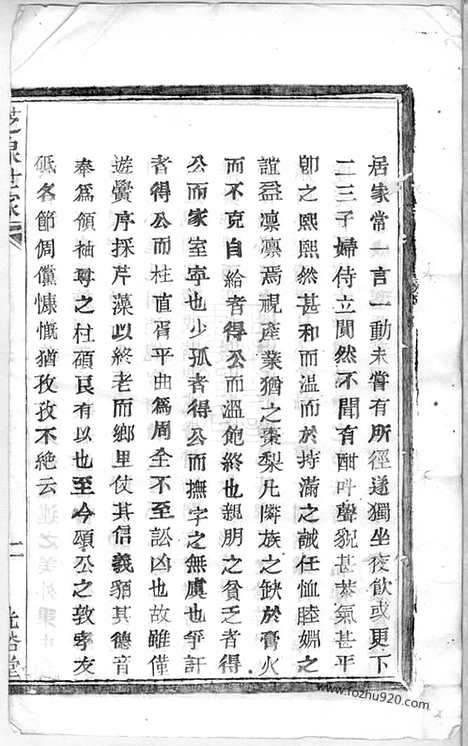 居家常一言一動未嘗有所徑遂獨坐夜飲或更下
二三子婦侍立闃然不聞有酣呌聲貌甚恭氣甚平
卽之熙熙然甚和而温而於持滿之誡任恤睦婣之
誼益凛凛焉視産業猶之棗梨凡隣族之缺於膏火
而不克自給者得公而溫飽終也親朋之貧乏者得
公而家室寧也少孤者得公而撫字之無虞也爭訐
者得公而枉直胥平曲為周全不至訟凶也故雖僅
遊黌序採芹藻以終老而鄉里仗其信義頴其德音
奉為領袖尊之柱碩良有以也至今頌公之敦孝友
砥名節倜儻慷慨猶孜孜不絕云
二
www.fozhu920.com